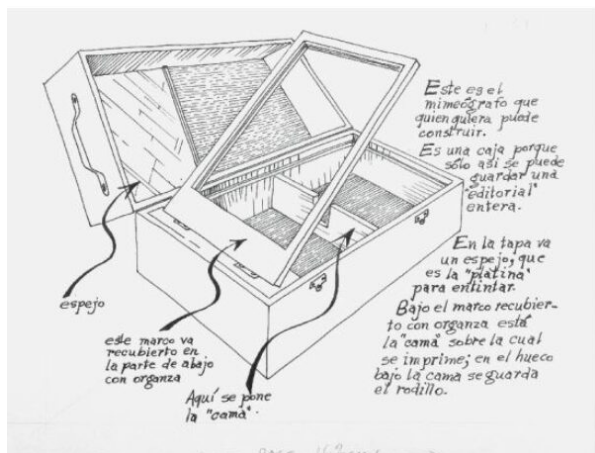 Este es el
mimeógrafo que
quien quiera puede
construir.
Es una caja porque
sólo así se puede
guardar una
"editorial"
entera.
En la tapa va
un espejo, que
es la "platina"
para entintar.
Bajo el marco recubier-
to con organza está
la "cama" sobre la cual
se imprime; en el hueco
bajo la cama se guarda
el rodillo.
espejo
este marco va
recubierto en
la parte de abajo
con organza
Aquí se pone
la "cama".